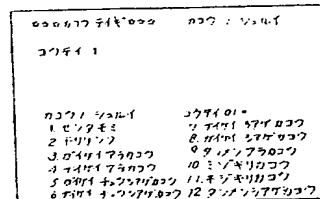 ロロロカコウ テイギロロロ カコウノ シュルイ
コウテイ 1
カコウノ シュルイ コウテイ01=
1 センタモミ 7 ナイケイ シアゲカコウ
2 ドリリング 8 ガイケイ シアゲカコウ
3 ガイケイアラカコウ 9 タンメンアラカコウ
4 ナイケイアラカコウ 10 ミゾギリカコウ
5 ガイケイ チュウシアゲカコウ 11 ネジギリカコウ
6 ナイケイ チュウシアゲカコウ 12 タンメンシアゲカコウ